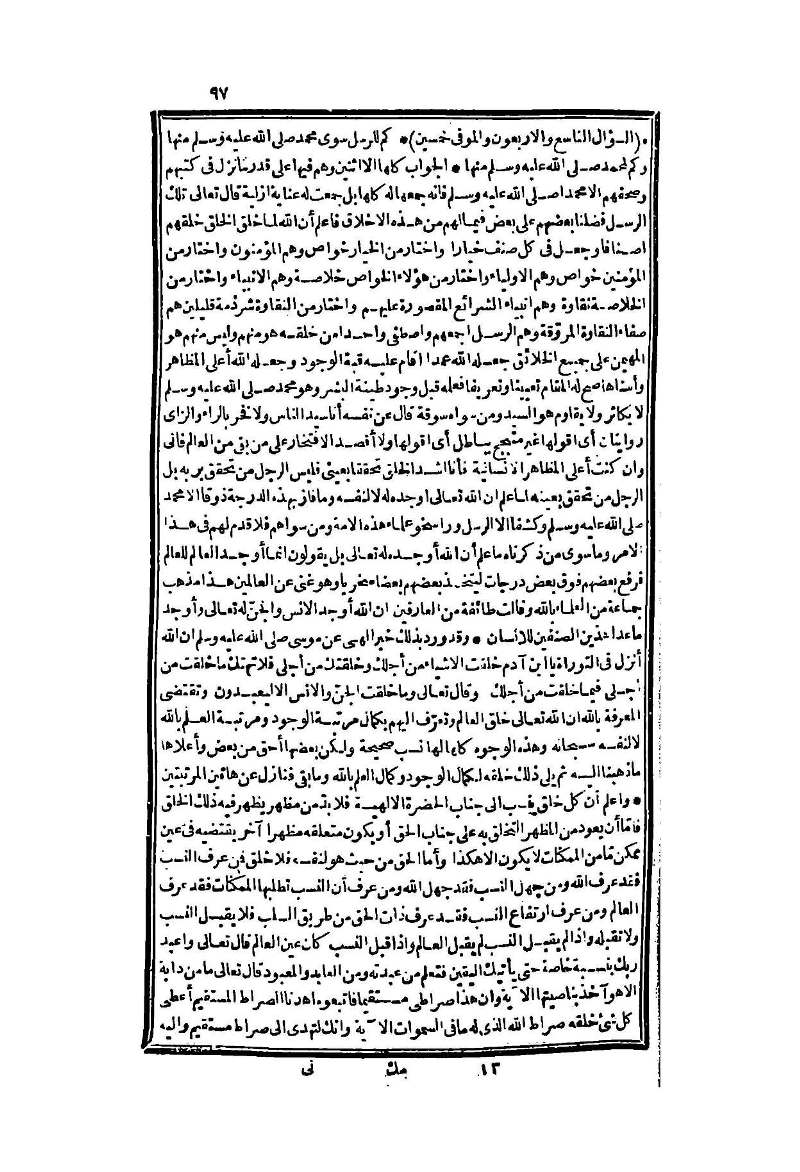 ٩٧
• (السؤال التاسع والاربعون والموفى خمسين) • كم للرسل سوى محمد صلى الله عليه وسلم منها
وكم لمحمد صلى الله عليه وسلم منها • الجواب كلها الا اثنتين وهم فيها على قدر ما نزل فى كتبهم
وصحفهم الا محمدا صلى الله عليه وسلم فانه جمعها له كلها بل جمعت له عناية ازلية قال تعالى تلك
الرسل فضلنا بعضهم على بعض فيما لهم من هذه الاخلاق فاعلم أن الله لما خلق الخلق خلقهم
اصنافا وجعل فى كل صنف خيارا واختار من الخيار خواص وهم المؤمنون واختار من
المؤمنين خواص وهم الاولياء واختار من هؤلاء الخواص خلاصة وهم الانبياء واختار من
الخلاصة نقاوة وهم انبياء الشرائع المقصورة عليهم واختار من النقاوة شرذمة قليلين هم
صفاء النقاوة المروقة وهم الرسل اجمعهم واصطفى واحدا من خلقه هو منهم وليس منهم هو
المهيمن على جميع الخلائق جعله الله عمدا اقام عليه قبة الوجود وجعله الله أعلى المظاهر
وأسناها صح له المقام تعيينا وتعريفا فعلمه قبل وجود طينة البشر وهو محمد صلى الله عليه وسلم
لا يكاثر ولا يقاوم هو السيد ومن سواه سوقة قال عن نفسه أنا سيد الناس ولا فخر بالراء والزاى
روايتان أى اقولها غير متبجح بباطل أى اقولها ولا أقصد الافتخار على من بقى من العالم فانى
وان كنت أعلى المظاهر الانسانية فأنا اشد الخلق تحققا بعينى فليس الرجل من تحقق بربه بل
الرجل من تحقق بعينه لما علم ان الله تعالى اوجده له لا لنفسه وما فاز بهذه الدرجة ذوقا الا محمد
صلى الله عليه وسلم وكشفا الا الرسل وراسخو علماء هذه الامة ومن سواهم فلا قدم لهم فى هذا
الامر وما سوى من ذكرناه ما علم أن الله أوجده له تعالى بل يقولون انما أوجد العالم للعالم
فرفع بعضهم فوق بعض درجات ليتخذ بعضهم بعضا سخريا وهو غنى عن العالمين هذا مذهب
جماعة من العلماء بالله وقالت طائفة من العارفين ان الله أوجد الانس والجن له تعالى وأوجد
ما عدا هذين الصنفين للانسان • وقد ورد بذلك خبر الهى عن موسى صلى الله عليه وسلم ان الله
أنزل فى التوراة يا ابن آدم خلقت الاشياء من أجلك وخلقتك من أجلى فلا تهتك ما خلقت من
اجلى فيما خلقت من أجلك وقال تعالى وما خلقت الجن والانس الا ليعبدون وتقتضى
المعرفة بالله ان الله تعالى خلق العالم وتعرف اليهم بكمال مرتبة الوجود ومرتبة العلم بالله
لا لنفسه سبحانه وهذه الوجوه كلها لها نسب صحيحة ولكن بعضها أحق من بعض وأعلاها
ما ذهبنا اليه ثم يلى ذلك خلقه لكمال الوجود وكمال العلم بالله وما بقى فنازل عن هاتين المرتبتين
• واعلم أن كل خلق ينسب الى جناب الحضرة الالهية فلا بد من مظهر يظهر فيه ذلك الخلق
فاما أن يعود من المظهر التخلق به على جناب الحق أو يكون متعلقه مظهرا آخر يقتضيه فى عين
ممكن ما من الممكنات لا يكون الا هكذا وأما الحق من حيث هو لنفسه فلا خلق فمن عرف النسب
فقد عرف الله ومن جهل النسب فقد جهل الله ومن عرف أن النسب تطلبها الممكنات فقد عرف
العالم ومن عرف ارتفاع النسب فقد عرف ذات الحق من طريق السلب فلا يقبل النسب
ولا تقبله واذا لم يقبل النسب لم يقبل العالم واذا قبل النسب كان عين العالم قال تعالى واعبد
ربك بنسبة خاصة حتى يأتيك اليقين فتعلم من عبدته ومن العابد والمعبود قال تعالى ما من دابة
الا هو آخذ بناصيتها الآية وان هذا صراطى مستقيما فاتبعوه اهدنا الصراط المستقيم أعطى
كل شئ خلقه صراط الله الذى له ما فى السموات الآية وانك لتهدى الى صراط مستقيم واليه
١٣ مك نى